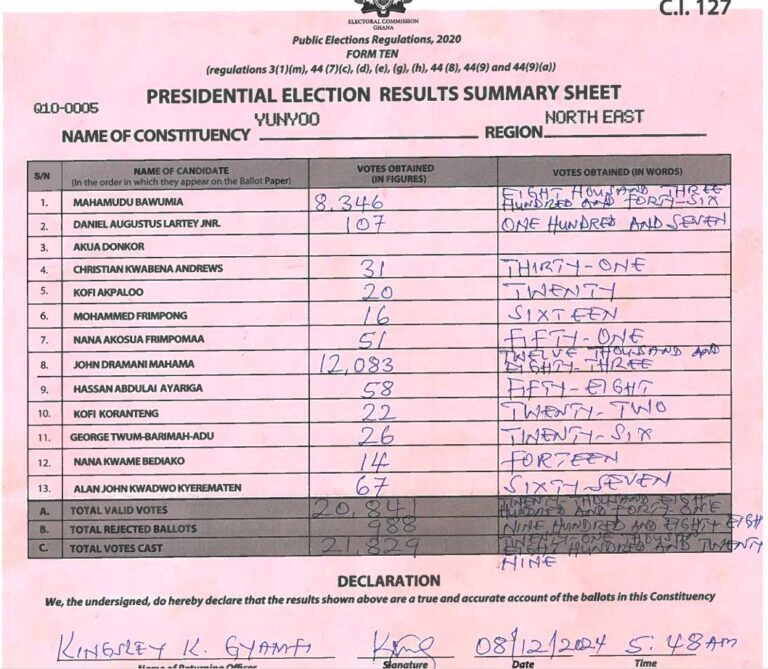 C.I. 127
ELECTORAL COMMISSION
GHANA
Public Elections Regulations, 2020
FORM TEN
(regulations 3(1)(m), 44 (7)(c), (d), (e), (g), (h), 44 (8), 44(9) and 44(9)(a))
PRESIDENTIAL ELECTION RESULTS SUMMARY SHEET
Q10-0005
NAME OF CONSTITUENCY YUNYOO REGION NORTH EAST
S/N NAME OF CANDIDATE (In the order in which they appear on the Ballot Paper) VOTES OBTAINED (IN FIGURES) VOTES OBTAINED (IN WORDS)
1. MAHAMUDU BAWUMIA 8,346 EIGHT HOUSAND THREE HUNDRED AND FORTY-SIX
2. DANIEL AUGUSTUS LARTEY JNR. 107 ONE HUNDRED AND SEVEN
3. AKUA DONKOR
4. CHRISTIAN KWABENA ANDREWS 31 THIRTY-ONE
5. KOFI AKPALOO 20 TWENTY
6. MOHAMMED FRIMPONG 16 SIXTEEN
7. NANA AKOSUA FRIMPOMAA 51 FIFTY-ONE
8. JOHN DRAMANI MAHAMA 12,083 TWELVE THOUSAND AND EIGHTY-THREE
9. HASSAN ABDULAI AYARIGA 58 FIFTY-EIGHT
10. KOFI KORANTENG 22 TWENTY-TWO
11. GEORGE TWUM-BARIMAH-ADU 26 TWENTY-SIX
12. NANA KWAME BEDIAKO 14 FORTEEN
13. ALAN JOHN KWADWO KYEREMATEN 67 SIXTY-SEVEN
A. TOTAL VALID VOTES 20,841 TWENTY THOUSAND EIGHT HUNDRED AND FORTY ONE
B. TOTAL REJECTED BALLOTS 988 NINE HUNDRED AND EIGHTY EIGH
C. TOTAL VOTES CAST 21,829 TWENTY-ONE THOUSAN EIGHT HUNDRED AND TWENTY NINE
DECLARATION
We, the undersigned, do hereby declare that the results shown above are a true and accurate account of the ballots in this Constituency
KINGSLEY K. GYAMFI 08/12/2024 5:48AM
Name of Returning Officer Signature Date Time